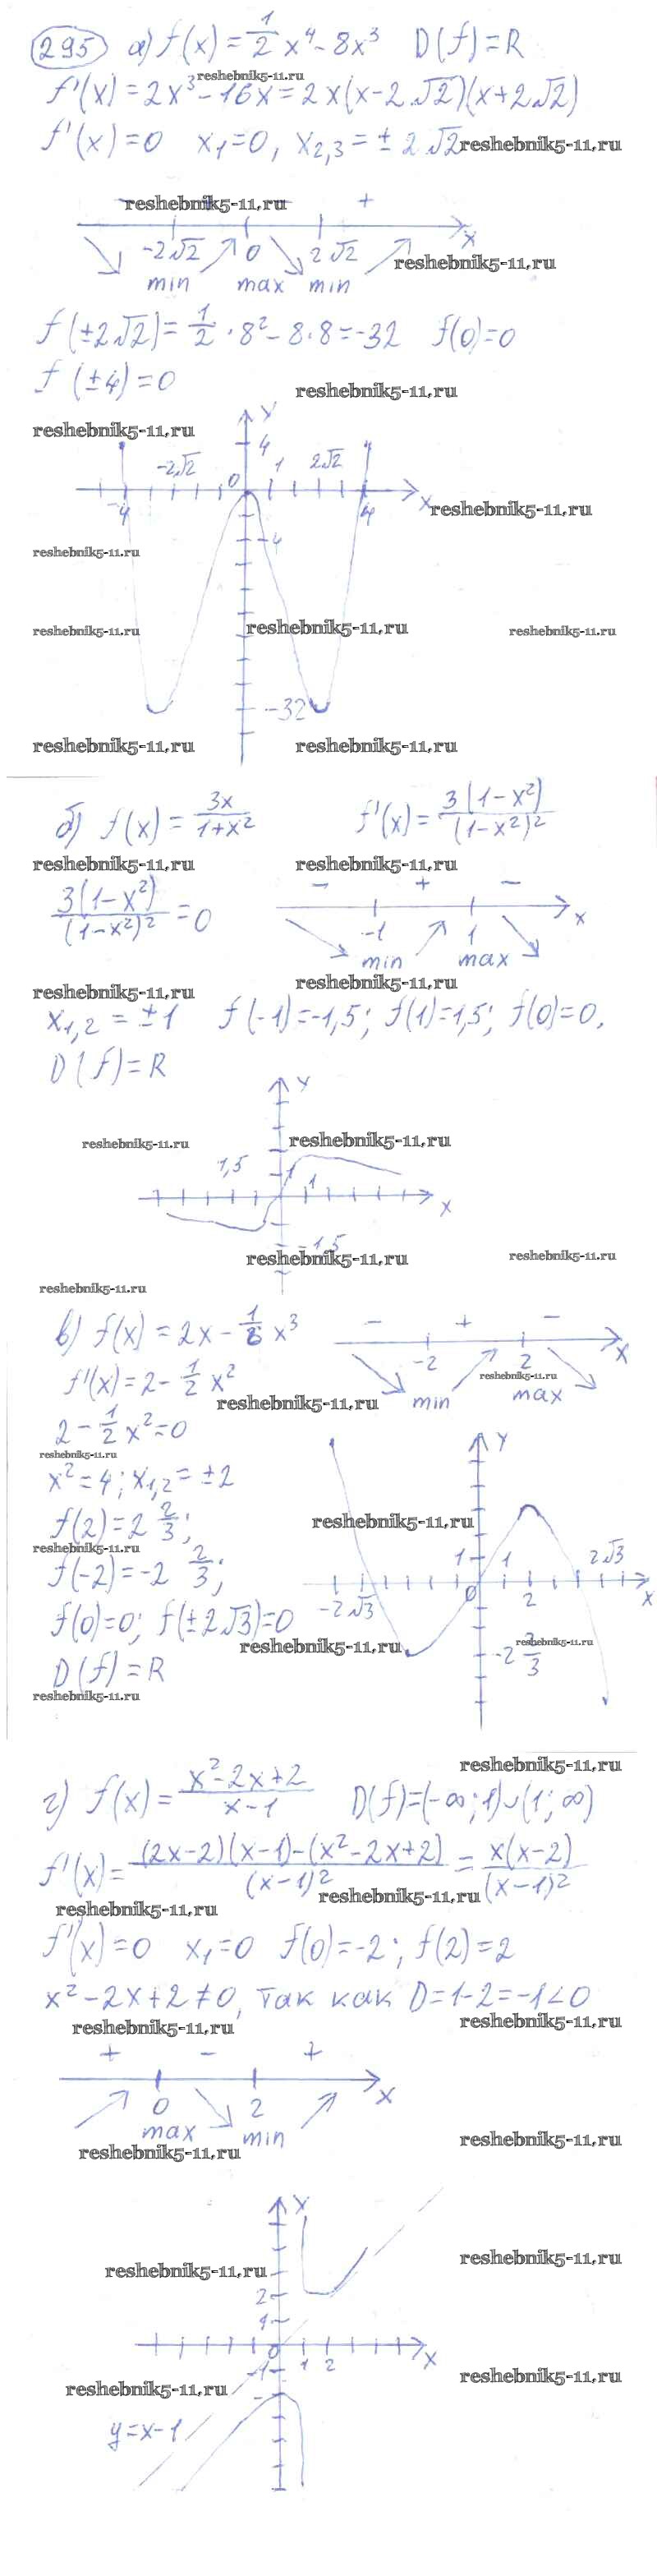 295 а) f(x) = 1/2 x⁴ - 8x³ D(f) = R
reshebnik5-11.ru
f'(x) = 2x³ - 16x = 2x(x-2√2)(x+2√2)
f'(x) = 0 x₁=0, x₂,₃ = ± 2√2 reshebnik5-11.ru
reshebnik5-11.ru +
-2√2 0 2√2 x
reshebnik5-11.ru
min max min
f(±2√2) = 1/2 · 8² - 8·8 = -32 f(0)=0
f(±4) = 0 reshebnik5-11.ru
y
reshebnik5-11.ru 4
-2√2 0 1 2√2
-4 4 x reshebnik5-11.ru
-4
reshebnik5-11.ru
reshebnik5-11.ru reshebnik5-11.ru reshebnik5-11.ru
-32
reshebnik5-11.ru reshebnik5-11.ru
б) f(x) = 3x/(1+x²) f'(x) = 3(1-x²)/(1-x²)²
reshebnik5-11.ru reshebnik5-11.ru
3(1-x²)/(1-x²)² = 0 - + -
-1 1 x
min max
reshebnik5-11.ru reshebnik5-11.ru
x₁,₂ = ±1 f(-1)=-1,5; f(1)=1,5; f(0)=0.
D(f) = R
y
reshebnik5-11.ru reshebnik5-11.ru
1,5 1
1
x
-1,5
reshebnik5-11.ru reshebnik5-11.ru
reshebnik5-11.ru
в) f(x) = 2x - 1/6 x³ - + -
-2 2 x
f'(x) = 2 - 1/2 x² reshebnik5-11.ru
reshebnik5-11.ru min max
2 - 1/2 x² = 0
reshebnik5-11.ru y
x² = 4; x₁,₂ = ±2
f(2) = 2 2/3; reshebnik5-11.ru
reshebnik5-11.ru
f(-2) = -2 2/3; 1 1 2√3
-2√3 0 2 x
f(0)=0; f(±2√3)=0
reshebnik5-11.ru reshebnik5-11.ru
-2 2/3
D(f) = R
reshebnik5-11.ru
reshebnik5-11.ru
г) f(x) = (x²-2x+2)/(x-1) D(f)=(-∞;1)∪(1;∞)
f'(x) = ((2x-2)(x-1)-(x²-2x+2))/(x-1)² = x(x-2)/(x-1)²
reshebnik5-11.ru reshebnik5-11.ru
f'(x)=0 x₁=0 f(0)=-2; f(2)=2
x²-2x+2≠0, так как D=1-2=-1<0
reshebnik5-11.ru reshebnik5-11.ru
+ - +
0 2 x
max min
reshebnik5-11.ru reshebnik5-11.ru
y
reshebnik5-11.ru reshebnik5-11.ru
2
1
0 1 2 x
-1 reshebnik5-11.ru
reshebnik5-11.ru
y=x-1